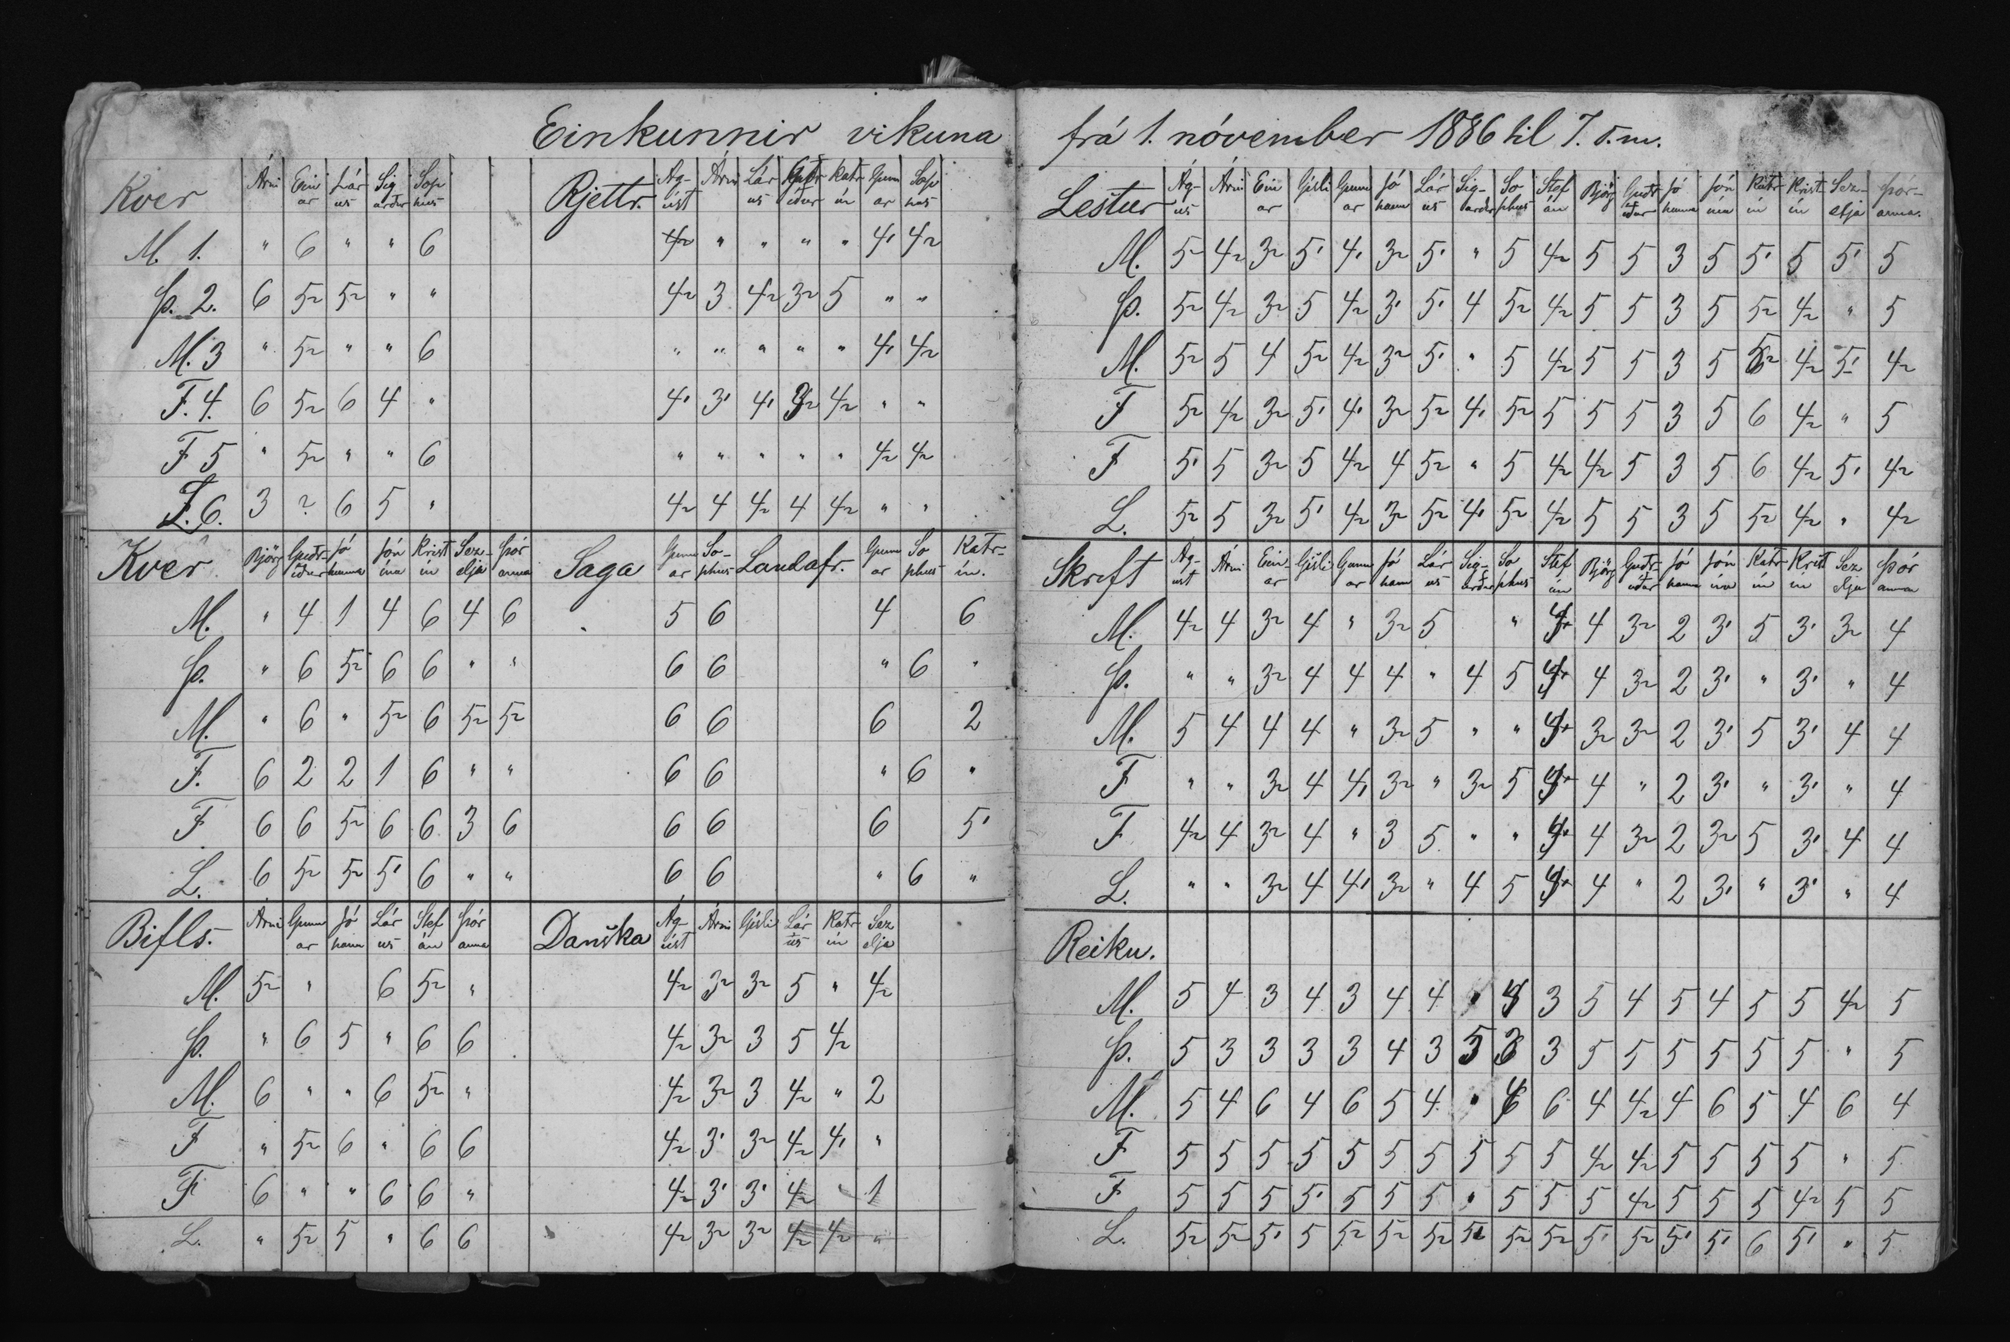 Einkunnir vikuna
Kver Árni Einar Lárus Sigurður Sophus
M. 1. " 6 " " 6
Þ. 2. 6 52 52 " "
M. 3 " 52 " " 6
F. 4. 6 52 6 4 "
F 5 " 52 " " 6
L. 6. 3 ? 6 5 "
Rjettr. Ágúst Árni Lárus Guðríður Katrín Gunnar Sophus
42 " " " " 4' 42
42 3 42 32 5 " "
" " " " " 4' 42
4' 3' 4' 32 42 " "
" " " " " 42 42
42 4 42 4 42 " "
Kver Björg Guðríður Jóhanna Jónína Kristín Sezelja Þóranna
M. " 4 1 4 6 4 6
Þ. " 6 52 6 6 " "
M. " 6 " 52 6 52 52
F. 6 2 2 1 6 " "
F 6 6 52 6 6 3 6
L. 6 52 52 5' 6 " "
Saga Gunnar Sophus Landafr. Gunnar Sophus Katrín.
5 6 4 6
6 6 " 6 "
6 6 6 2
6 6 " 6 "
6 6 6 5'
6 6 " 6 "
Bifls. Árni Gunnar Jóhann Lárus Stefán Þóranna
M. 52 " 6 52 "
Þ. " 6 5 " 6 6
M. 6 " " 6 52 "
F " 52 6 " 6 6
F 6 " " 6 6 "
L. " 52 5 " 6 6
Danska Ágúst Árni Gísli Lárus Katrín Sezelja
42 32 32 5 " 42
42 32 3 5 42
42 32 3 42 " 2
42 3' 32 42 4' "
42 3' 3' 42 1
42 32 32 42 42 "
frá 1. nóvember 1886 til 7. s.m.
Lestur Ágús Árni Einar Gísli Gunnar Jóhann Lárus Sigurður Sophus Stefán Björg Guðríður Jóhanna Jónína Katrín Kristín Sezelja Þóranna.
M. 52 42 32 5' 4' 32 5' " 5 42 5 5 3 5 5' 5 5' 5
Þ. 52 42 32 5 42 3' 5' 4 52 42 5 5 3 5 52 42 " 5
M. 52 5 4 52 42 32 5' " 5 42 5 5 3 5 52 42 5' 42
F 52 42 32 5' 4' 32 52 4' 52 5 5 5 3 5 6 42 " 5
F 5' 5 32 5 42 4 52 " 5 42 42 5 3 5 6 42 5' 42
L. 52 5 32 5' 42 32 52 4' 52 42 5 5 3 5 52 42 " 42
Skrift Ágúst Árni Einar Gísli Gunnar Jóhann Lárus Sigurður Sophus Stefán Björg Guðríður Jóhanna Jónína Katrín Kristín Sezelja Þóranna
M. 42 4 32 4 " 32 5 " 4 32 2 3' 5 3' 32 4
Þ. " " 32 4 4 4 " 4 5 4 32 2 3' " 3' " 4
M. 5 4 4 4 " 32 5 " " 32 32 2 3' 5 3' 4 4
F " " 32 4 4' 32 " 32 5 4 " 2 3' " 3' " 4
F 42 4 32 4 " 3 5 " " 4 32 2 32 5 3' 4 4
L. " " 32 4 4' 32 " 4 5 4 " 2 3' " 3' " 4
Reikn.
M. 5 4 3 4 3 4 4 " 3 5 4 5 4 5 5 42 5
Þ. 5 3 3 3 3 4 3 5 3 3 5 5 5 5 5 5 " 5
M. 5 4 6 4 6 5 4 " 6 6 4 42 4 6 5 4 6 4
F 5 5 5 5 5 5 5 5 5 5 42 42 5 5 5 5 " 5
F 5 5 5 5' 5 5 5 " 5 5 5 42 5 5 5 42 5 5
L. 52 52 5' 5 52 52 52 52 52 52 5' 52 5' 5' 6 5' " 5